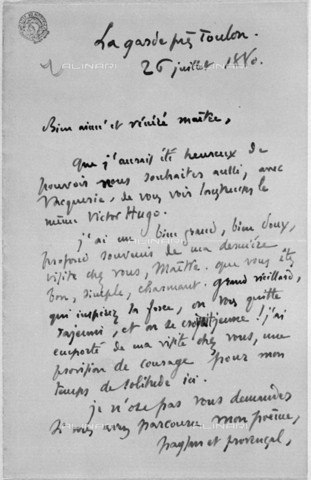 La garde près Toulon.
26 juillet 1880.
Bien aimé et vénéré maître,
Que j'aurais été heureux de
pouvoir vous souhaiter aussi, avec
Vacquerie, de vous voir longtemps le
même Victor Hugo.
j'ai un bien grand, bien doux,
profond souvenir de ma dernière
visite chez vous, Maître. que vous êtes
bon, simple, charmant grand vieillard,
qui inspirez la force, on vous quitte
rajeuni, et on se croit jeune! j'ai
emporté de ma visite chez vous, une
provision de courage pour mon
temps de solitude ici.
je n'ose pas vous demander
si vous avez parcouru mon poème,
paysan et provençal,
ALINARI